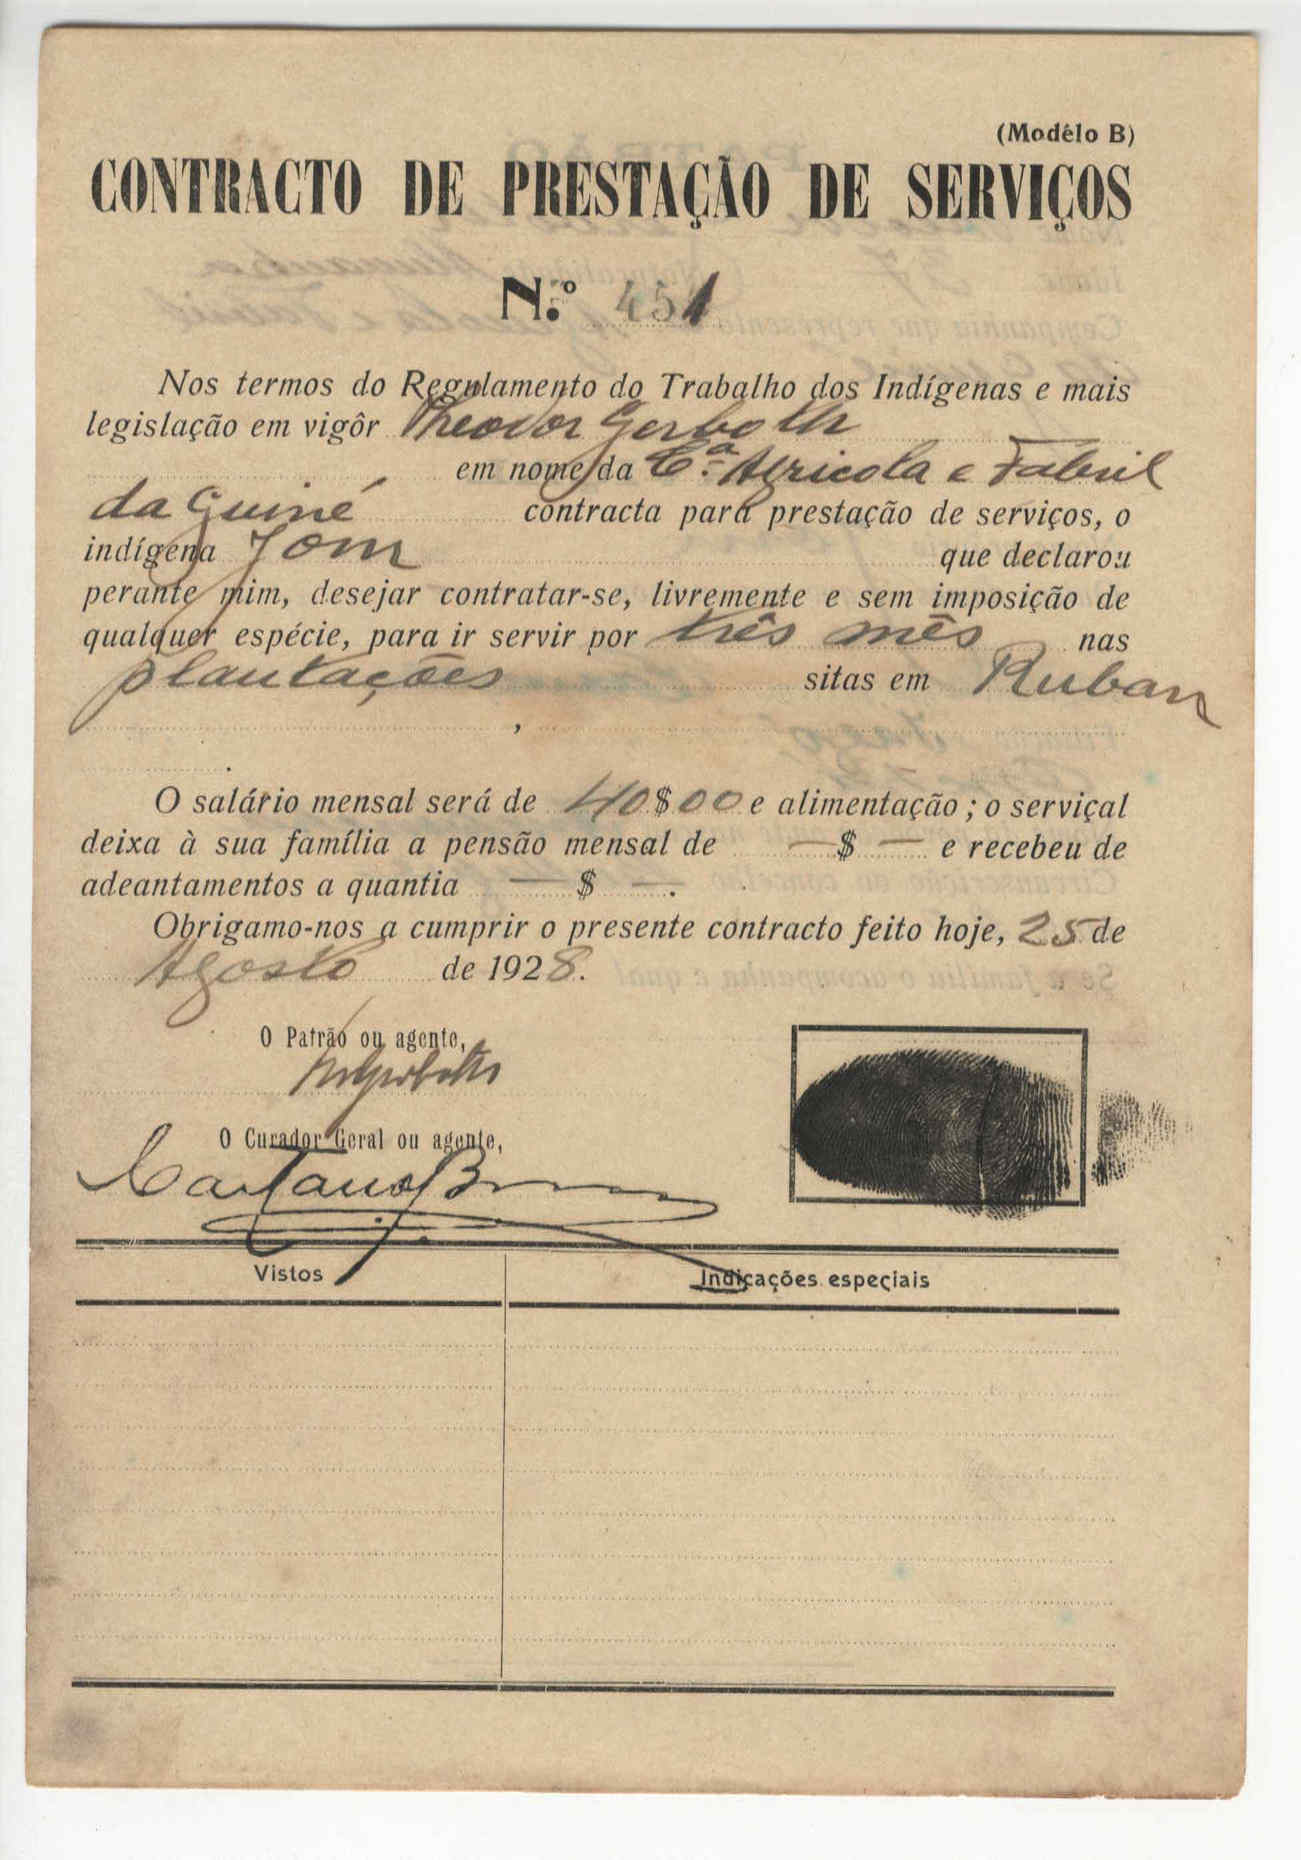 (Modêlo B)
CONTRACTO DE PRESTAÇÃO DE SERVIÇOS
N.º 451
Nos termos do Regulamento do Trabalho dos Indígenas e mais
legislação em vigôr Theodor Gerboth
em nome da C.ª Agricola e Fabril
da Guiné contracta para prestação de serviços, o
indígena Jom que declarou
perante mim, desejar contratar-se, livremente e sem imposição de
qualquer espécie, para ir servir por três mês nas
plantações sitas em Ruban
,
.
O salário mensal será de 40$00 e alimentação; o serviçal
deixa à sua família a pensão mensal de —$— e recebeu de
adeantamentos a quantia —$—.
Obrigamo-nos a cumprir o presente contracto feito hoje, 25 de
Agosto de 1928.
O Patrão ou agente,
O Curador Geral ou agente,
Caetano
Vistos Indicações especiais